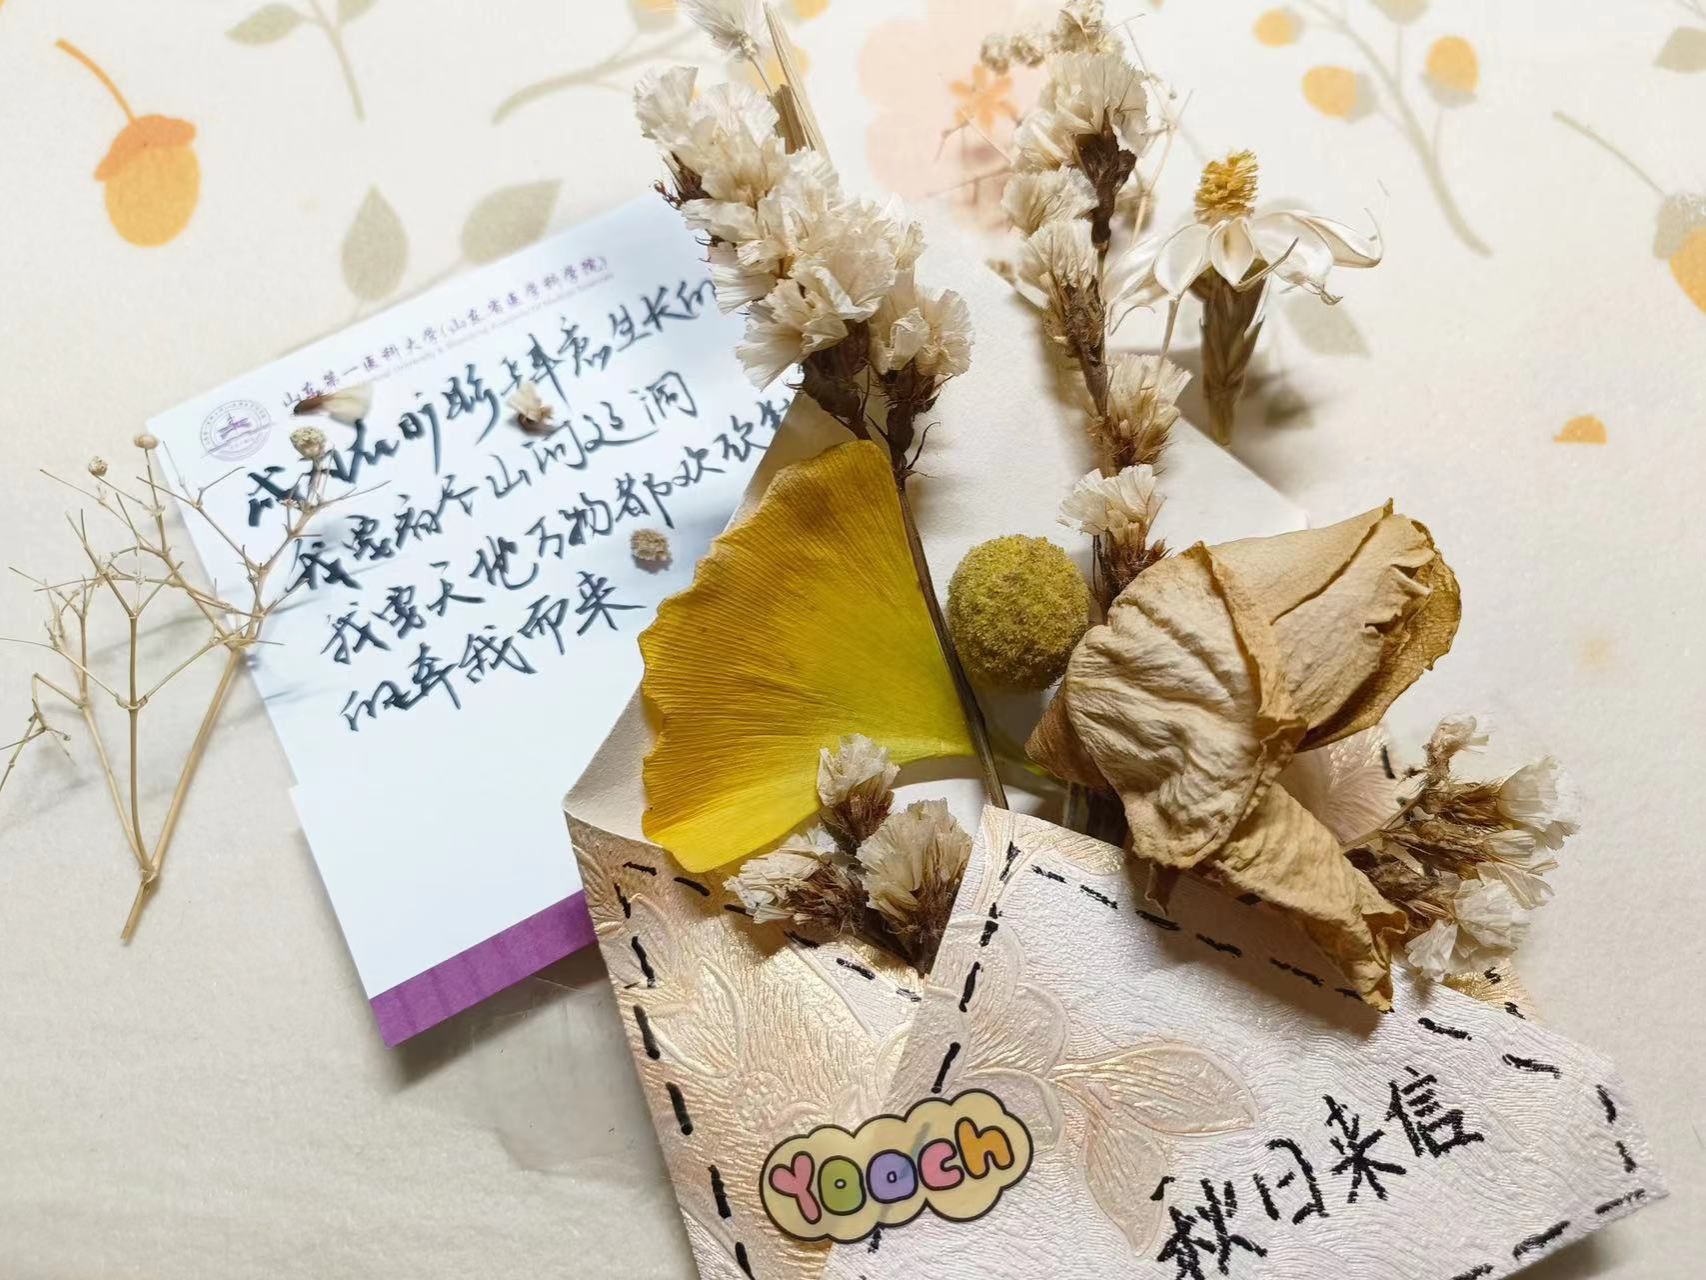 山东第一医科大学(山东省医学科学院)
成为在旷野上肆意生长的
我要看个山河辽阔
我要天地万物都欢欣鼓
的奔我而来
Yooch
秋日来信